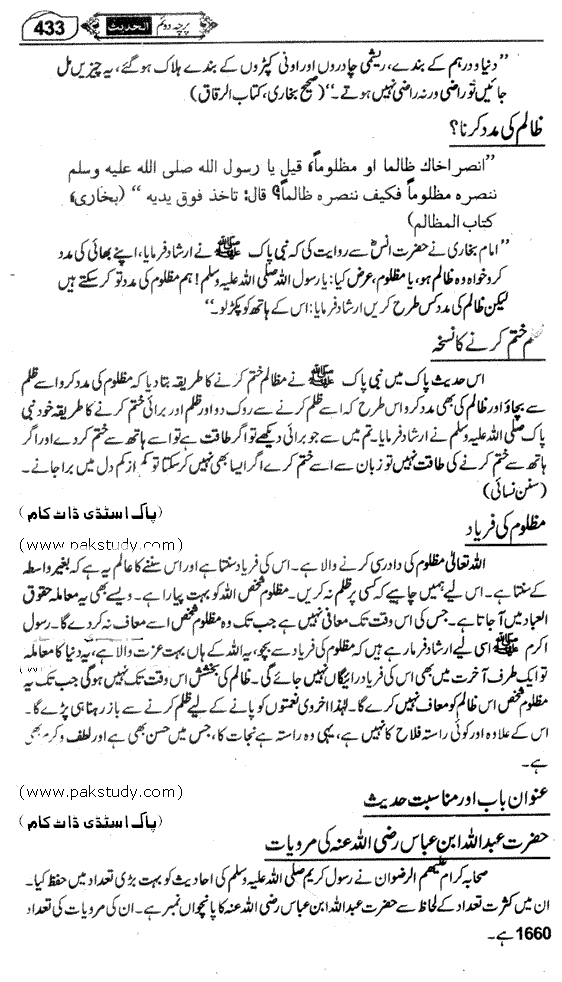 433 الحدیث پرچہ دوئم
”دنیا و درہم کے بندے، ریشمی چادروں اور اونی کپڑوں کے بندے ہلاک ہو گئے، یہ چیزیں مل
جائیں تو راضی ورنہ راضی نہیں ہوتے۔“ (صحیح بخاری، کتاب الرقاق)
ظالم کی مدد کرنا؟
”انصر اخاك ظالما او مظلوماً، قيل يا رسول الله صلى الله عليه وسلم
ننصره مظلوماً فكيف ننصره ظالماً؟ قال: تاخذ فوق يديه “ (بخاری،
کتاب المظالم)
”امام بخاری نے حضرت انسؓ سے روایت کی کہ نبی پاک ﷺ نے ارشاد فرمایا، اپنے بھائی کی مدد
کرو خواہ وہ ظالم ہو، یا مظلوم، عرض کیا: یا رسول اللہ صلی اللہ علیہ وسلم! ہم مظلوم کی مدد تو کر سکتے ہیں
لیکن ظالم کی مدد کس طرح کریں ارشاد فرمایا: اس کے ہاتھ کو پکڑ لو۔“
ظلم ختم کرنے کا نسخہ
اس حدیث پاک میں نبی پاک ﷺ نے مظالم ختم کرنے کا طریقہ بتا دیا کہ مظلوم کی مدد کرو اسے ظلم
سے بچاؤ اور ظالم کی بھی مدد کرو اس طرح کہ اسے ظلم کرنے سے روک دو اور ظلم اور برائی ختم کرنے کا طریقہ خود نبی
پاک صلی اللہ علیہ وسلم نے ارشاد فرمایا۔ تم میں سے جو برائی دیکھے تو اگر طاقت ہے تو اسے ہاتھ سے ختم کر دے اور اگر
ہاتھ سے ختم کرنے کی طاقت نہیں تو زبان سے اسے ختم کرے اگر ایسا بھی نہیں کر سکتا تو کم از کم دل میں برا جانے۔
(سنن نسائی)
(پاک اسٹڈی ڈاٹ کام)
مظلوم کی فریاد
(www.pakstudy.com)
اللہ تعالیٰ مظلوم کی دادرسی کرنے والا ہے۔ اس کی فریاد سنتا ہے اور اس سننے کا عالم یہ ہے کہ بغیر واسطہ
کے سنتا ہے۔ اس لیے ہمیں چاہیے کہ کسی پر ظلم نہ کریں۔ مظلوم شخص اللہ کو بہت پیارا ہے۔ ویسے بھی یہ معاملہ حقوق
العباد میں آ جاتا ہے۔ جس کی اس وقت تک معافی نہیں ہے جب تک وہ مظلوم شخص اسے معاف نہ کر دے گا۔ رسول
اکرم ﷺ اسی لیے ارشاد فرما رہے ہیں کہ مظلوم کی فریاد سے بچو، یہ اللہ کے ہاں بہت عزت والا ہے، یہ دنیا کا معاملہ
تو ایک طرف آخرت میں بھی اس کی فریاد رائیگاں نہیں جائے گی۔ ظالم کی بخشش اس وقت تک نہیں ہوگی جب تک یہ
مظلوم شخص اس ظالم کو معاف نہیں کرے گا۔ لہٰذا اخروی نعمتوں کو پانے کے لیے ظلم کرنے سے باز رہنا ہی پڑے گا۔
اس کے علاوہ اور کوئی راستہ فلاح کا نہیں ہے، یہی وہ راستہ ہے نجات کا، جس میں حسن بھی ہے اور لطف و کرم بھی
ہے۔
(www.pakstudy.com)
عنوان باب اور مناسبت حدیث
(پاک اسٹڈی ڈاٹ کام)
حضرت عبداللہ ابن عباس رضی اللہ عنہ کی مرویات
صحابہ کرام علیہم الرضوان نے رسول کریم صلی اللہ علیہ وسلم کی احادیث کو بہت بڑی تعداد میں حفظ کیا۔
ان میں کثرت تعداد کے لحاظ سے حضرت عبداللہ ابن عباس رضی اللہ عنہ کا پانچواں نمبر ہے۔ ان کی مرویات کی تعداد
1660 ہے۔